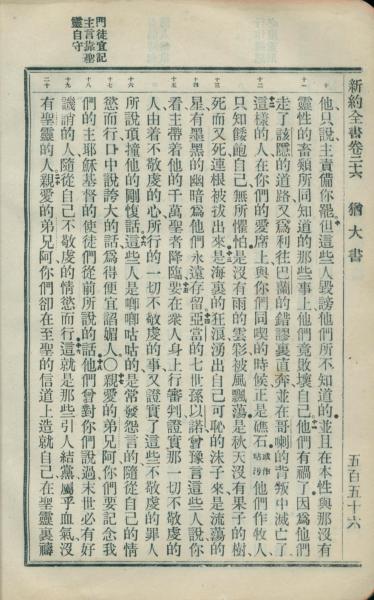 新約全書卷二十六 猶大書 五百五十六
他只說主責備你罷但這些人毀謗他們所不知道的並且在本性與那沒有
靈性的畜類所同知道的那些事上他們竟敗壞自己他們有禍了因爲他們
走了該隱的道路又爲利往巴蘭的錯謬裏直奔並在哥喇的背叛中滅亡了
這樣的人在你們的愛席上與你們同喫的時候正是礁石或作玷污他們作牧人
只知餧飽自己無所懼怕是沒有雨的雲彩被風飄蕩是秋天沒有果子的樹
死而又死連根被拔出來是海裏的狂浪湧出自己可恥的沫子來是流蕩的
星有墨黑的幽暗爲他們永遠存留亞當的七世孫以諾曾豫言這些人說你
看主帶着他的千萬聖者降臨要在衆人身上行審判證實那一切不敬虔的
人由着不敬虔的心所行的一切不敬虔的事又證實了這些不敬虔的罪人
所說頂撞他的剛愎話這些人是唧唧咕咕的是常發怨言的隨從自己的情
慾而行口中說誇大的話爲得便宜諂媚人〇親愛的弟兄阿你們要記念我
們的主耶穌基督的使徒們從前所說的話他們曾對你們說過末世必有好
譏誚的人隨從自己不敬虔的情慾而行這就是那些引人結黨屬乎血氣沒
有聖靈的人親愛的弟兄阿你們卻在至聖的信道上造就自己在聖靈裏禱
十
十一
十二
十三
十四
十五
十六
十七
十八
十九
二十
門徒宜記
主言靠聖
靈自守